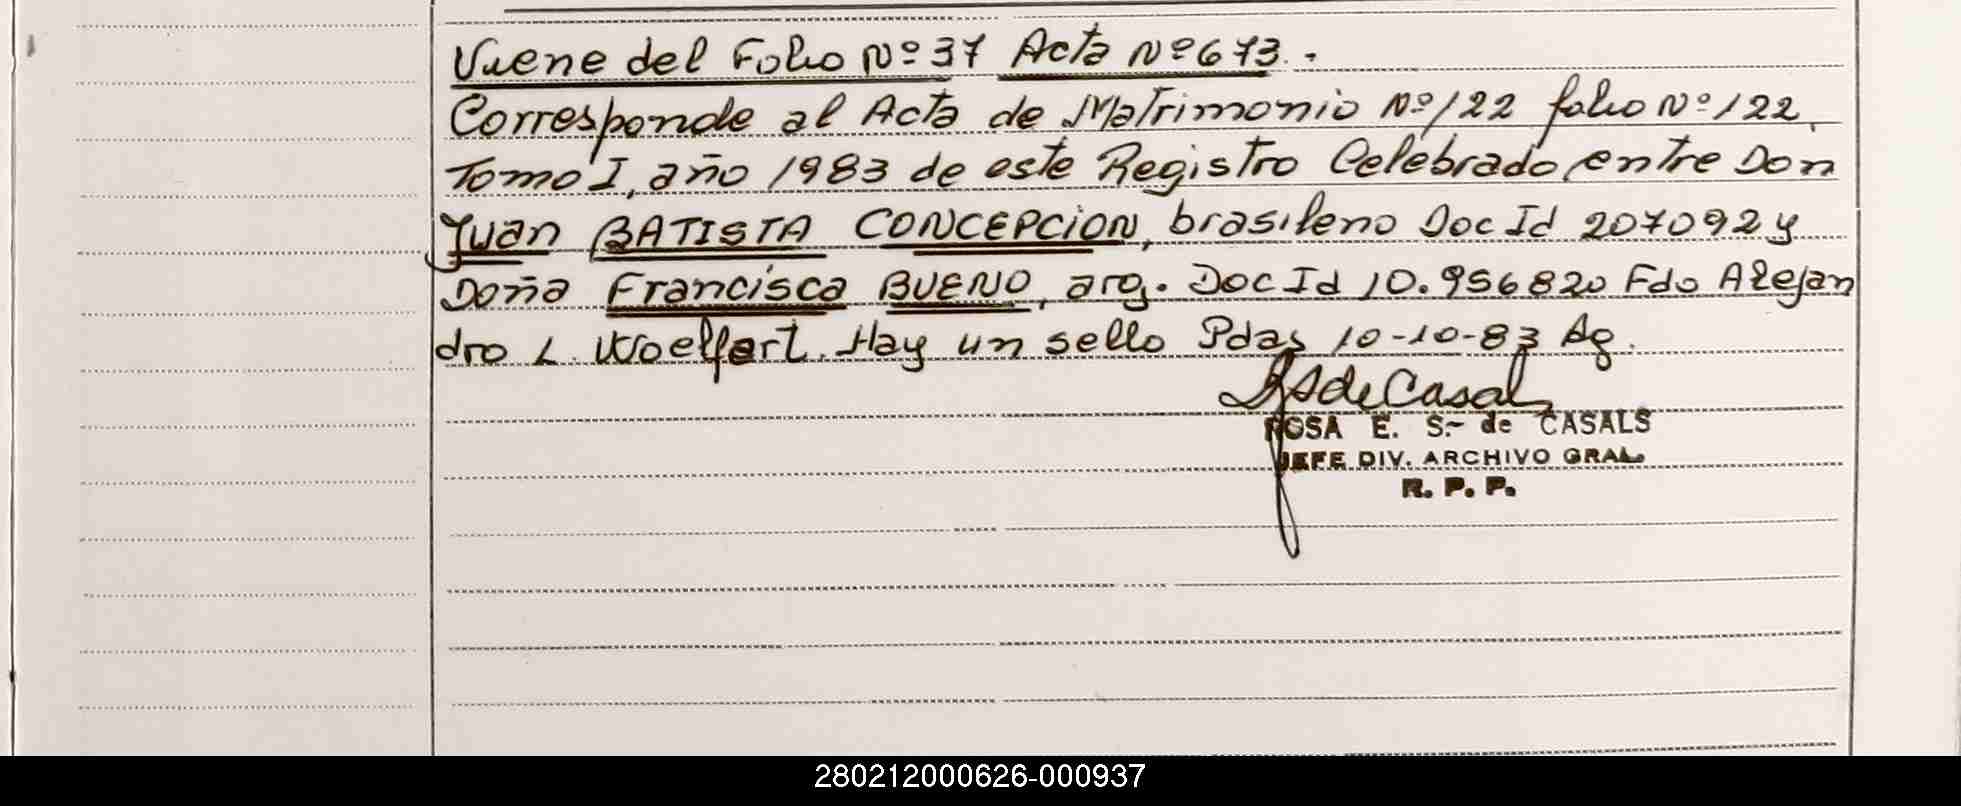 Viene del Folio Nº 37 Acta Nº 673.-
Corresponde al Acta de Matrimonio Nº 122 folio Nº 122,
Tomo I, año 1983 de este Registro Celebrado entre Don
Juan BATISTA CONCEPCION, brasileno Doc Id 207092 y
Doña Francisca BUENO, arg. Doc Id 10.956820 Fdo Alejan
dro L. Woelfert. Hay un sello Pdas 10-10-83 Ag.
ROSA E. S. de CASALS
JEFE DIV. ARCHIVO GRAL.
R. P. P.
280212000626-000937